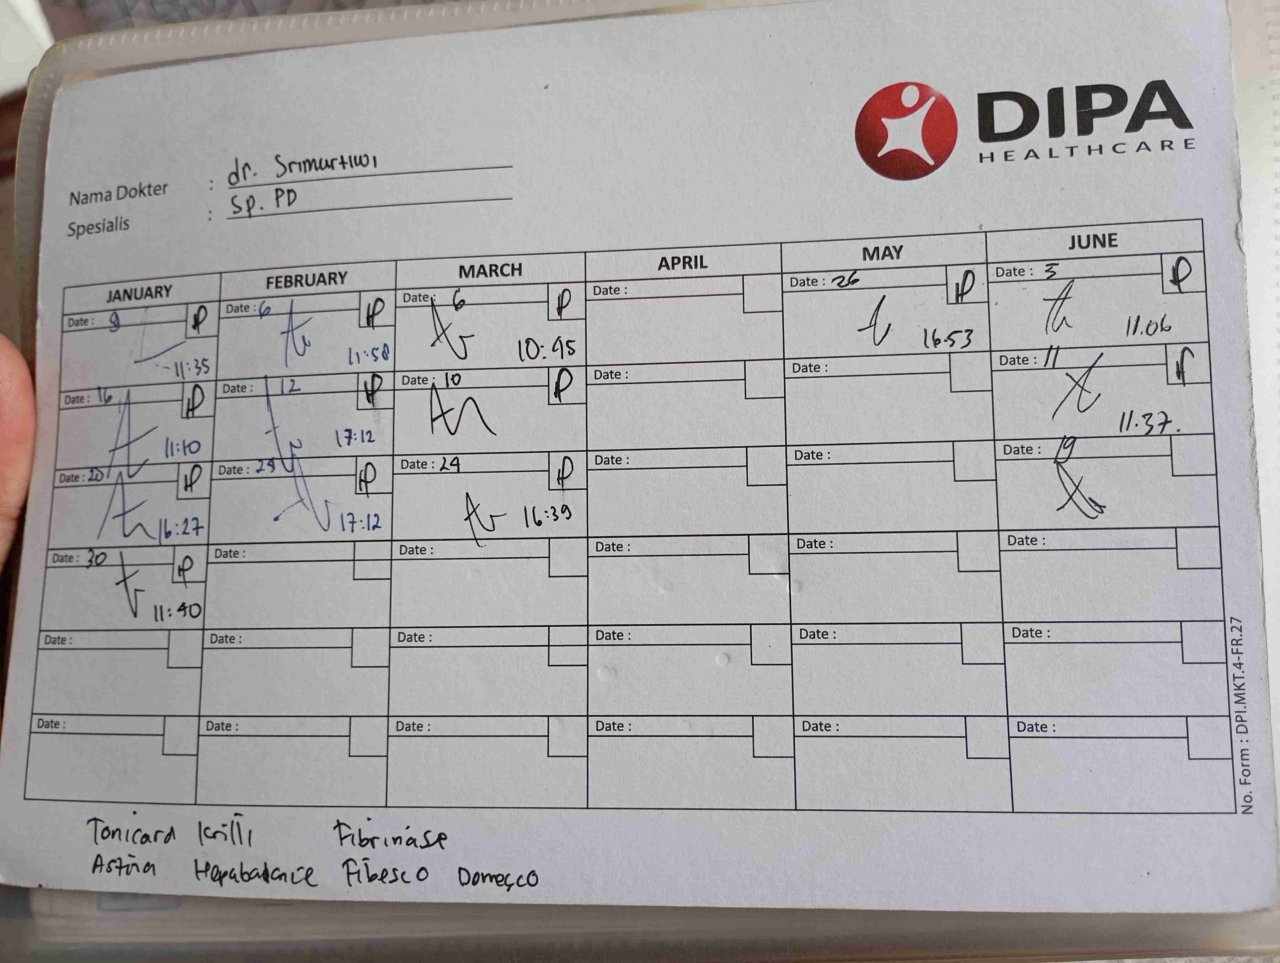 DIPA
HEALTHCARE
Nama Dokter : dr. Srimurtiwi
Spesialis : Sp. PD
JANUARY FEBRUARY MARCH APRIL MAY JUNE
Date : 8 Date : 6 Date : 6 Date : Date : 26 Date : 3
11:35 11:58 10:45 16.53 11.06
Date : 16 Date : 12 Date : 10 Date : Date : Date : 11
11:10 17:12 11.37.
Date : 20 Date : 24 Date : 24 Date : Date : Date : 19
16:27 17:12 16:39
Date : 30 Date : Date : Date : Date : Date :
11:40
Date : Date : Date : Date : Date : Date :
Date : Date : Date : Date : Date : Date :
Tonicard Krilli Fibrinase
Astina Hepabalance Fibesco Domesco
No. Form : DPI.MKT.4-FR.27